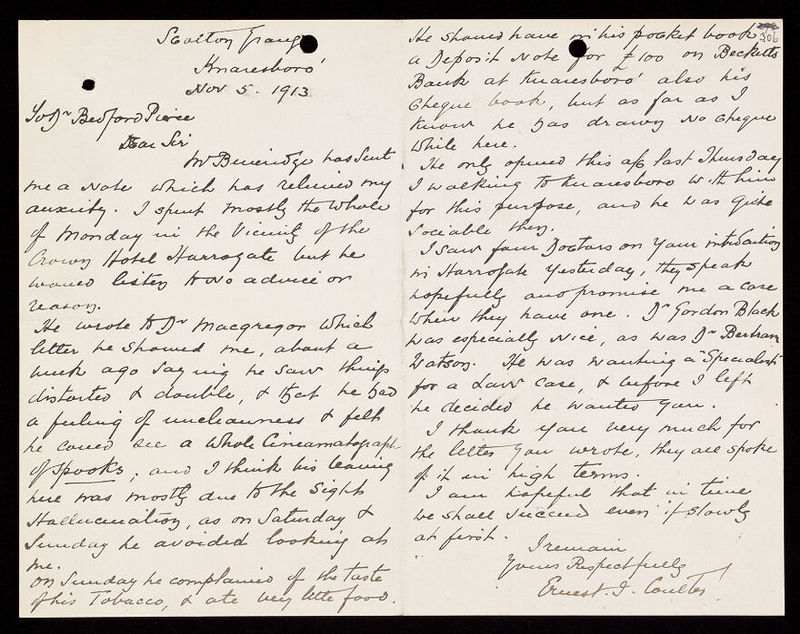 Scotton Grange
Knaresboro'
Nov 5. 1913
To Dr Bedford Pierce
Dear Sir
Mr Beveridge has sent
me a note which has relieved my
anxiety. I spent mostly the whole
of Monday in the vicinity of the
Crown Hotel Harrogate but he
would listen to no advice or
reason.
He wrote to Dr Macgregor which
letter he showed me, about a
week ago saying he saw things
distorted & double, & that he had
a feeling of uncleanness & felt
he could see a whole Cinematograph
of spooks; and I think his leaving
here was mostly due to the sight
Hallucination, as on Saturday &
Sunday he avoided looking at
me.
On Sunday he complained of the taste
of his Tobacco, & ate very little food.
306
He should have in his pocket book
a Deposit Note for £100 on Becketts
Bank at Knaresboro' also his
cheque book, but as far as I
know he has drawn no cheque
while here.
He only opened this a/c last Thursday
I walking to Knaresboro with him
for this purpose, and he was quite
sociable then.
I saw four Doctors on your introduction
in Harrogate yesterday, they speak
hopefully and promise me a case
when they have one. Dr Gordon Black
was especially nice, as was Dr Bertram
Watson. He was wanting a "Specialist"
for a Law case, & before I left
he decided he wanted you.
I thank you very much for
the letter you wrote, they all spoke
of it in high terms.
I am hopeful that in time
we shall succeed even if slowly
at first.
I remain
Yours Respectfully
Ernest. J. Coulter